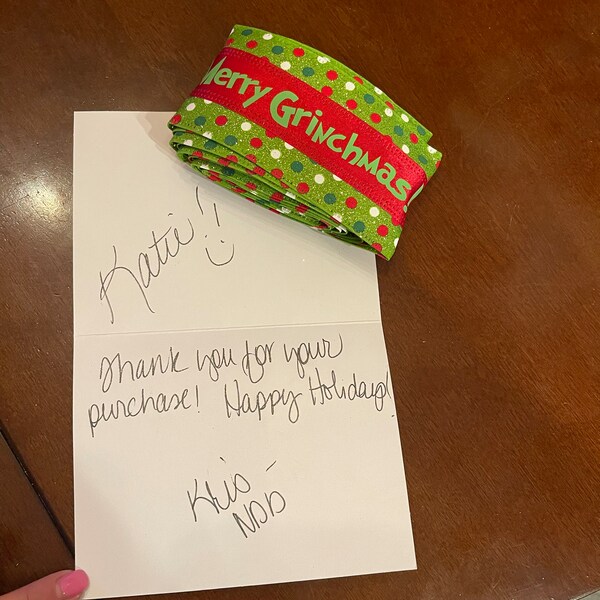 Merry Grinchmas
Katie!!
Thank you for your
purchase! Happy Holidays!
Kris -
NDD